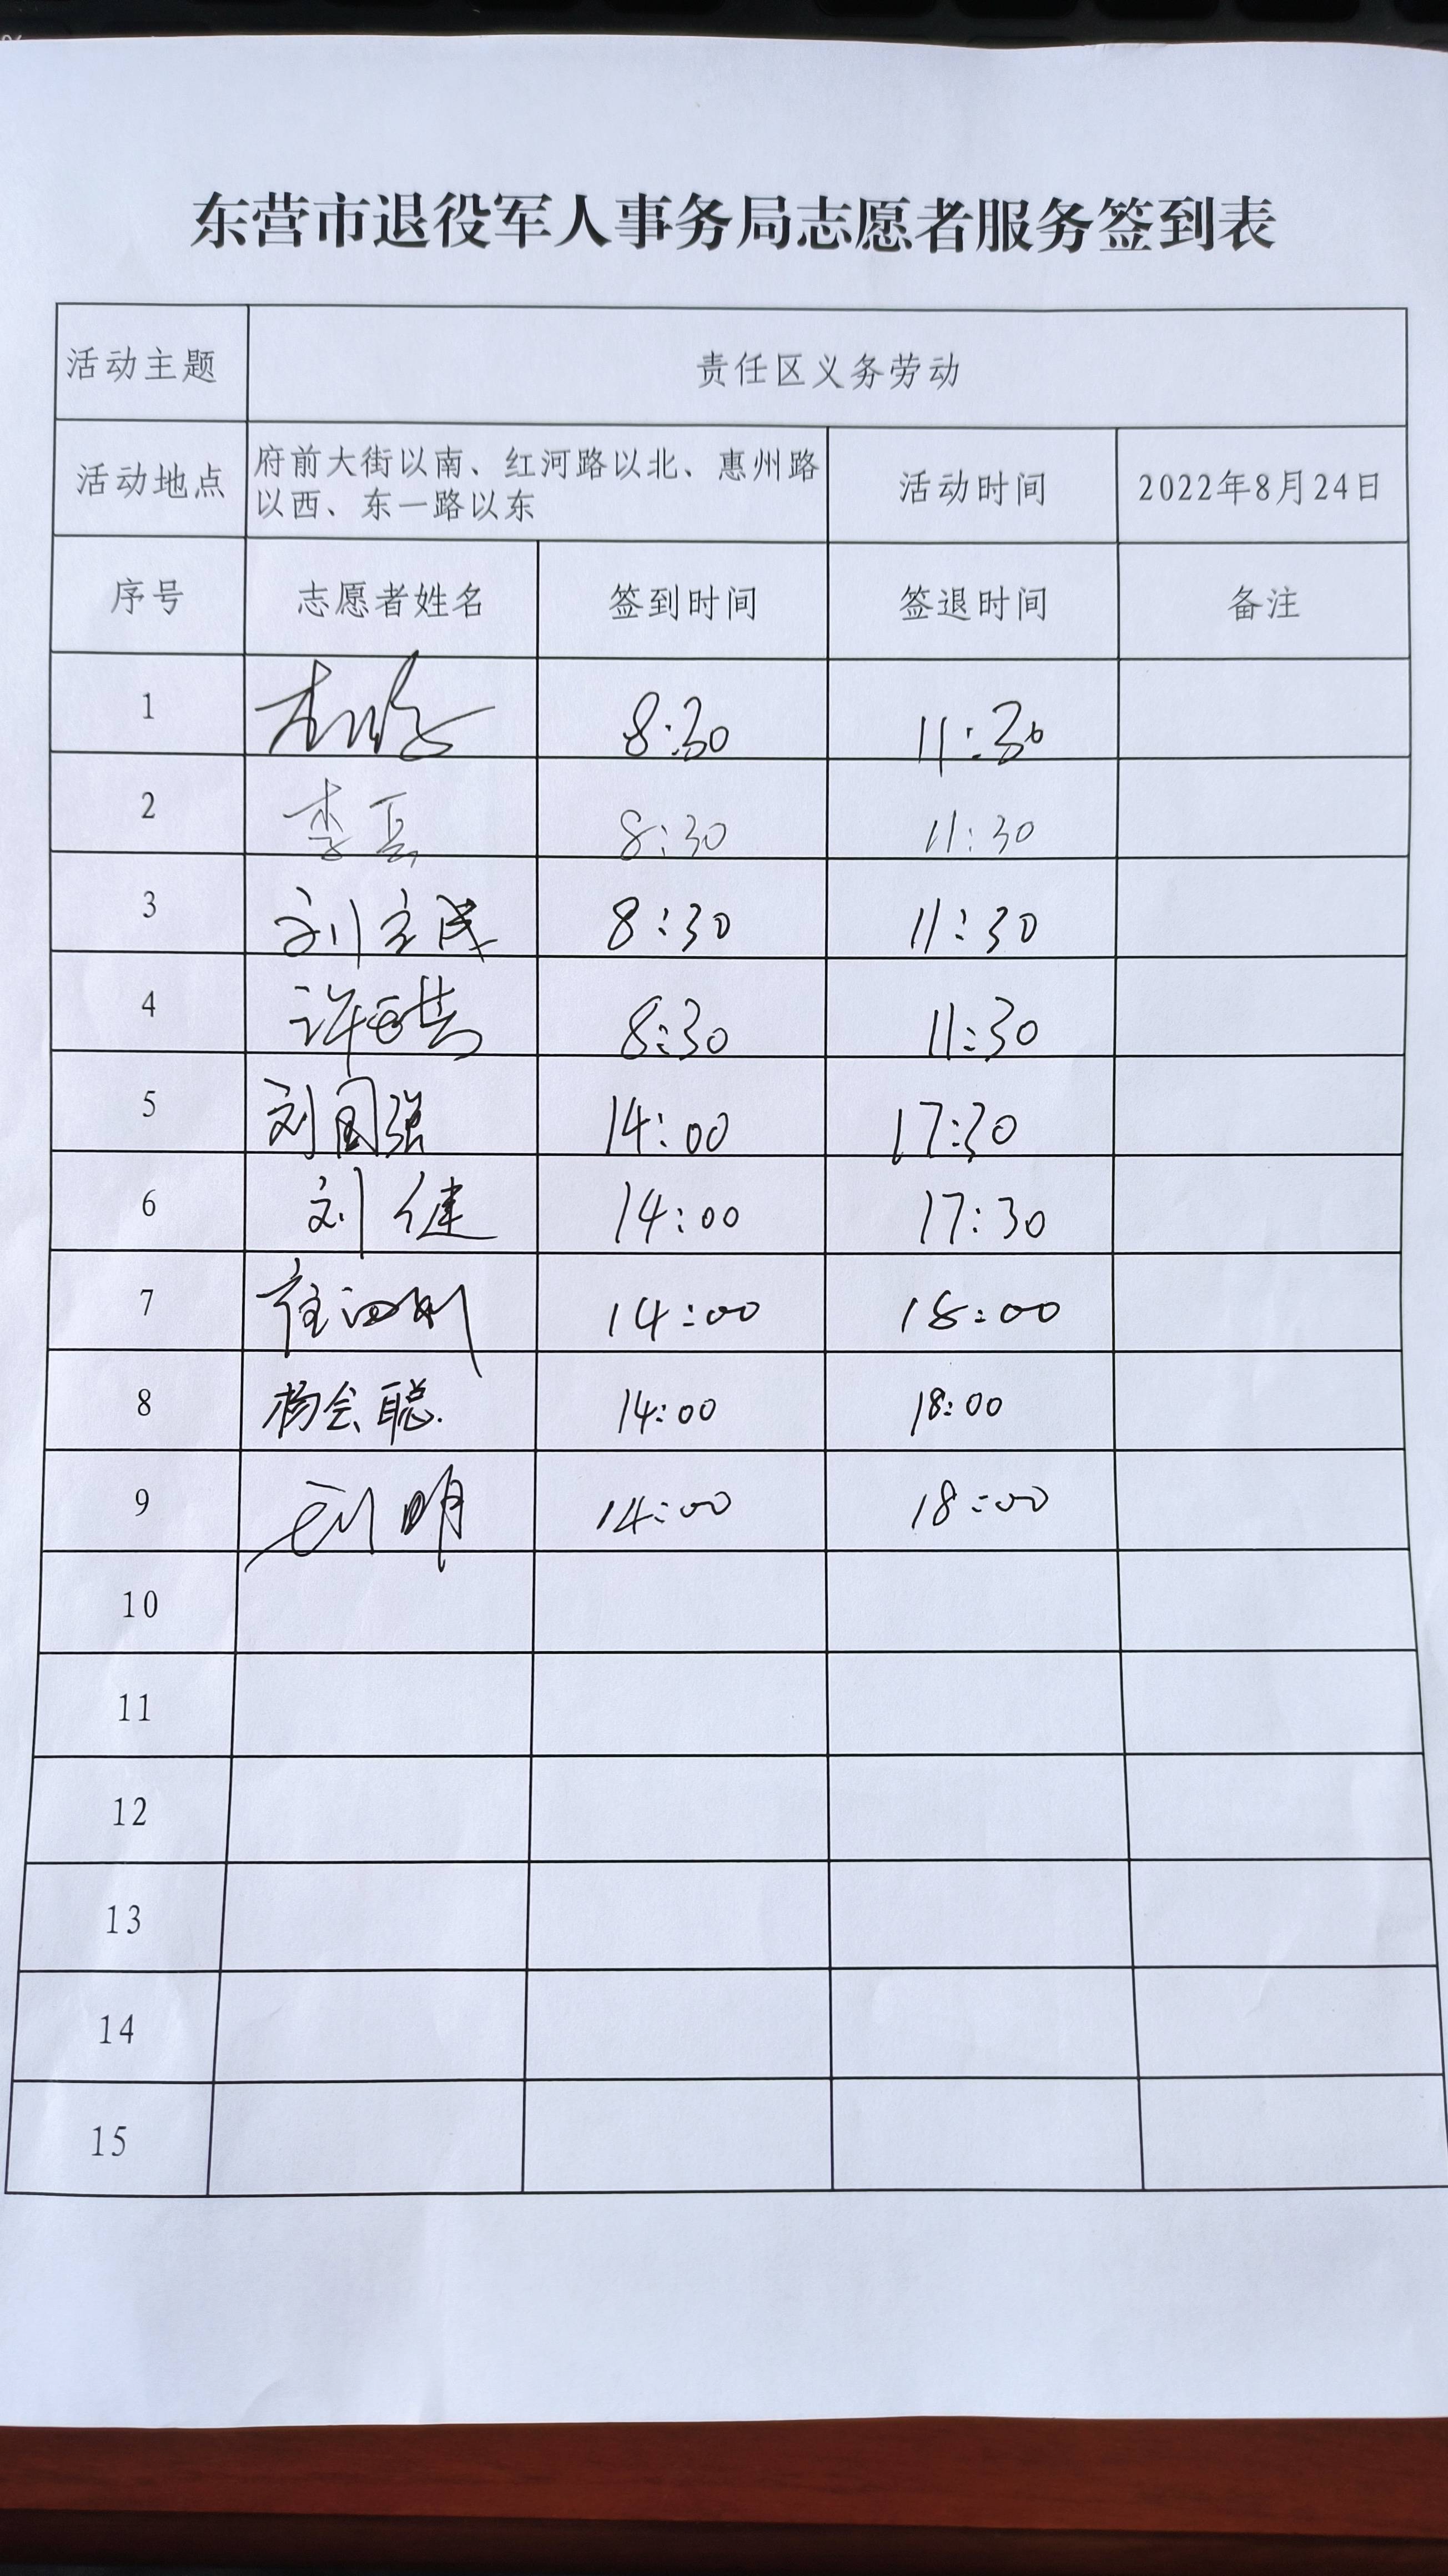 东营市退役军人事务局志愿者服务签到表
活动主题 责任区义务劳动
活动地点 府前大街以南、红河路以北、惠州路
以西、东一路以东 活动时间 2022年8月24日
序号 志愿者姓名 签到时间 签退时间 备注
1 8:30 11:30
2 李 8:30 11:30
3 刘 8:30 11:30
4 许 8:30 11:30
5 刘国强 14:00 17:30
6 刘健 14:00 17:30
7 14:00 18:00
8 杨会聪 14:00 18:00
9 刘明 14:00 18:00
10
11
12
13
14
15